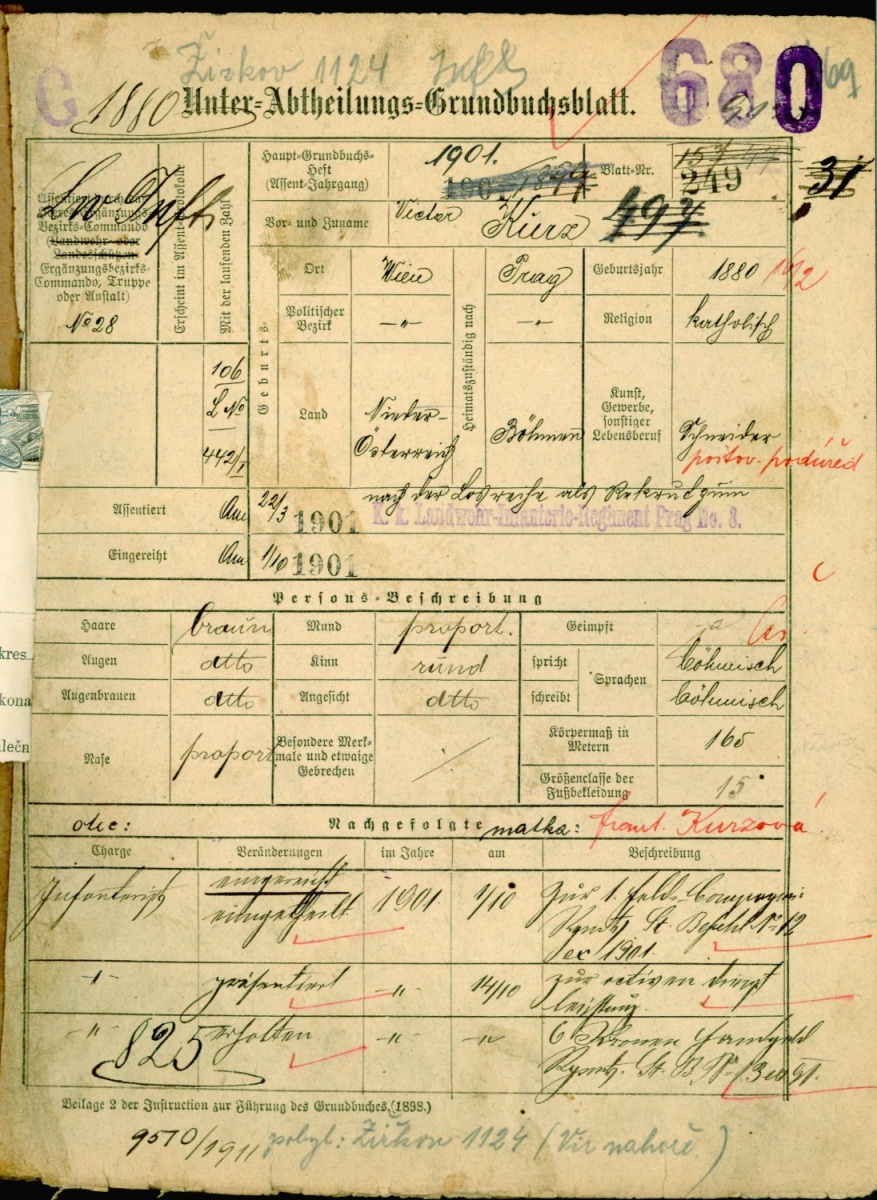 Žižkov 1124
G
680
1880 Unter-Abtheilungs-Grundbuchsblatt.
Haupt-Grundbuchs-
Heft
(Assent-Jahrgang)
1901.
Blatt-Nr.
249
31
497
Bezirks-Commando
(Landwehr- oder
Landesschützen-
Ergänzungsbezirks-
Commando, Truppe
oder Anstalt)
No 28
Erscheint im Assent-Protokone
Mit der laufenden Zahl
106
L No
442/1
Vor- und Zuname
Victor Kurz
Geburts
Ort
Wien
Heimatszuständig nach
Prag
Geburtsjahr
1880
Politischer
Bezirk
-"-
-"-
Religion
katholisch
Land
Nieder-
Österreich
Böhmen
Kunst,
Gewerbe,
sonstiger
Lebensberuf
Schneider
poštov. podúřed
Assentiert Am 22/3 1901
nach der Losreihe als Rekrut zum
K. k. Landwehr-Infanterie-Regiment Prag No. 8.
Eingereiht Am 1/10 1901
Persons-Beschreibung
Haare braun Mund proport. Geimpft ja
Augen dtto Kinn rund spricht Sprachen böhmisch
Augenbrauen dtto Angesicht dtto schreibt böhmisch
Nase proport Besondere Merk-
male und etwaige
Gebrechen ./.
Körpermaß in
Metern 165
Größenclasse der
Fußbekleidung 15
otec: Nachgefolgte matka: Frant. Kurzová
Charge Veränderungen im Jahre am Beschreibung
Infanterist eingereiht
eingetheilt 1901 1/10 zur 1. Feld-Compagnie
St. Befehl No 12
ex 1901.
-"- präsentiert -"- 14/10 zur activen Dienst
leistung.
-"- erhalten -"- -"- 6 Kronen Handgeld
825
Beilage 2 der Instruction zur Führung des Grundbuches. (1898.)
9570/1911 pobyt: Žižkov 1124 (Viz nahoře.)
kres..
kona
lečn